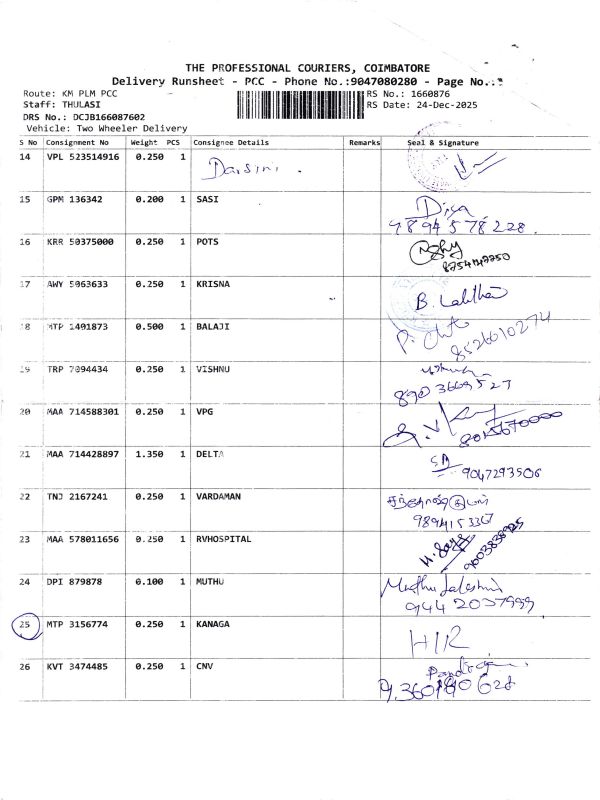 THE PROFESSIONAL COURIERS, COIMBATORE
Delivery Runsheet - PCC - Phone No.:9047080280 - Page No.:
Route: KM PLM PCC RS No.: 1660876
Staff: THULASI RS Date: 24-Dec-2025
DRS No.: DCJB166087602
Vehicle: Two Wheeler Delivery
S No Consignment No Weight PCS Consignee Details Remarks Seal & Signature
14 VPL 523514916 0.250 1 Darsini.
15 GPM 136342 0.200 1 SASI Diya
9894578228.
16 KRR 50375000 0.250 1 POTS
17 AWY 5063633 0.250 1 KRISNA B. Lalitha
18 MTP 1401873 0.500 1 BALAJI
8526010274
19 TRP 7094434 0.250 1 VISHNU
8903669527
20 MAA 714588301 0.250 1 VPG
8015670000
21 MAA 714428897 1.350 1 DELTA
9047293506
22 TNJ 2167241 0.250 1 VARDAMAN
9894153367
23 MAA 578011656 0.250 1 RVHOSPITAL
9003838925
24 DPI 879878 0.100 1 MUTHU Muthu Lakshmi
9442037999
25 MTP 3156774 0.250 1 KANAGA H/R
26 KVT 3474485 0.250 1 CNV